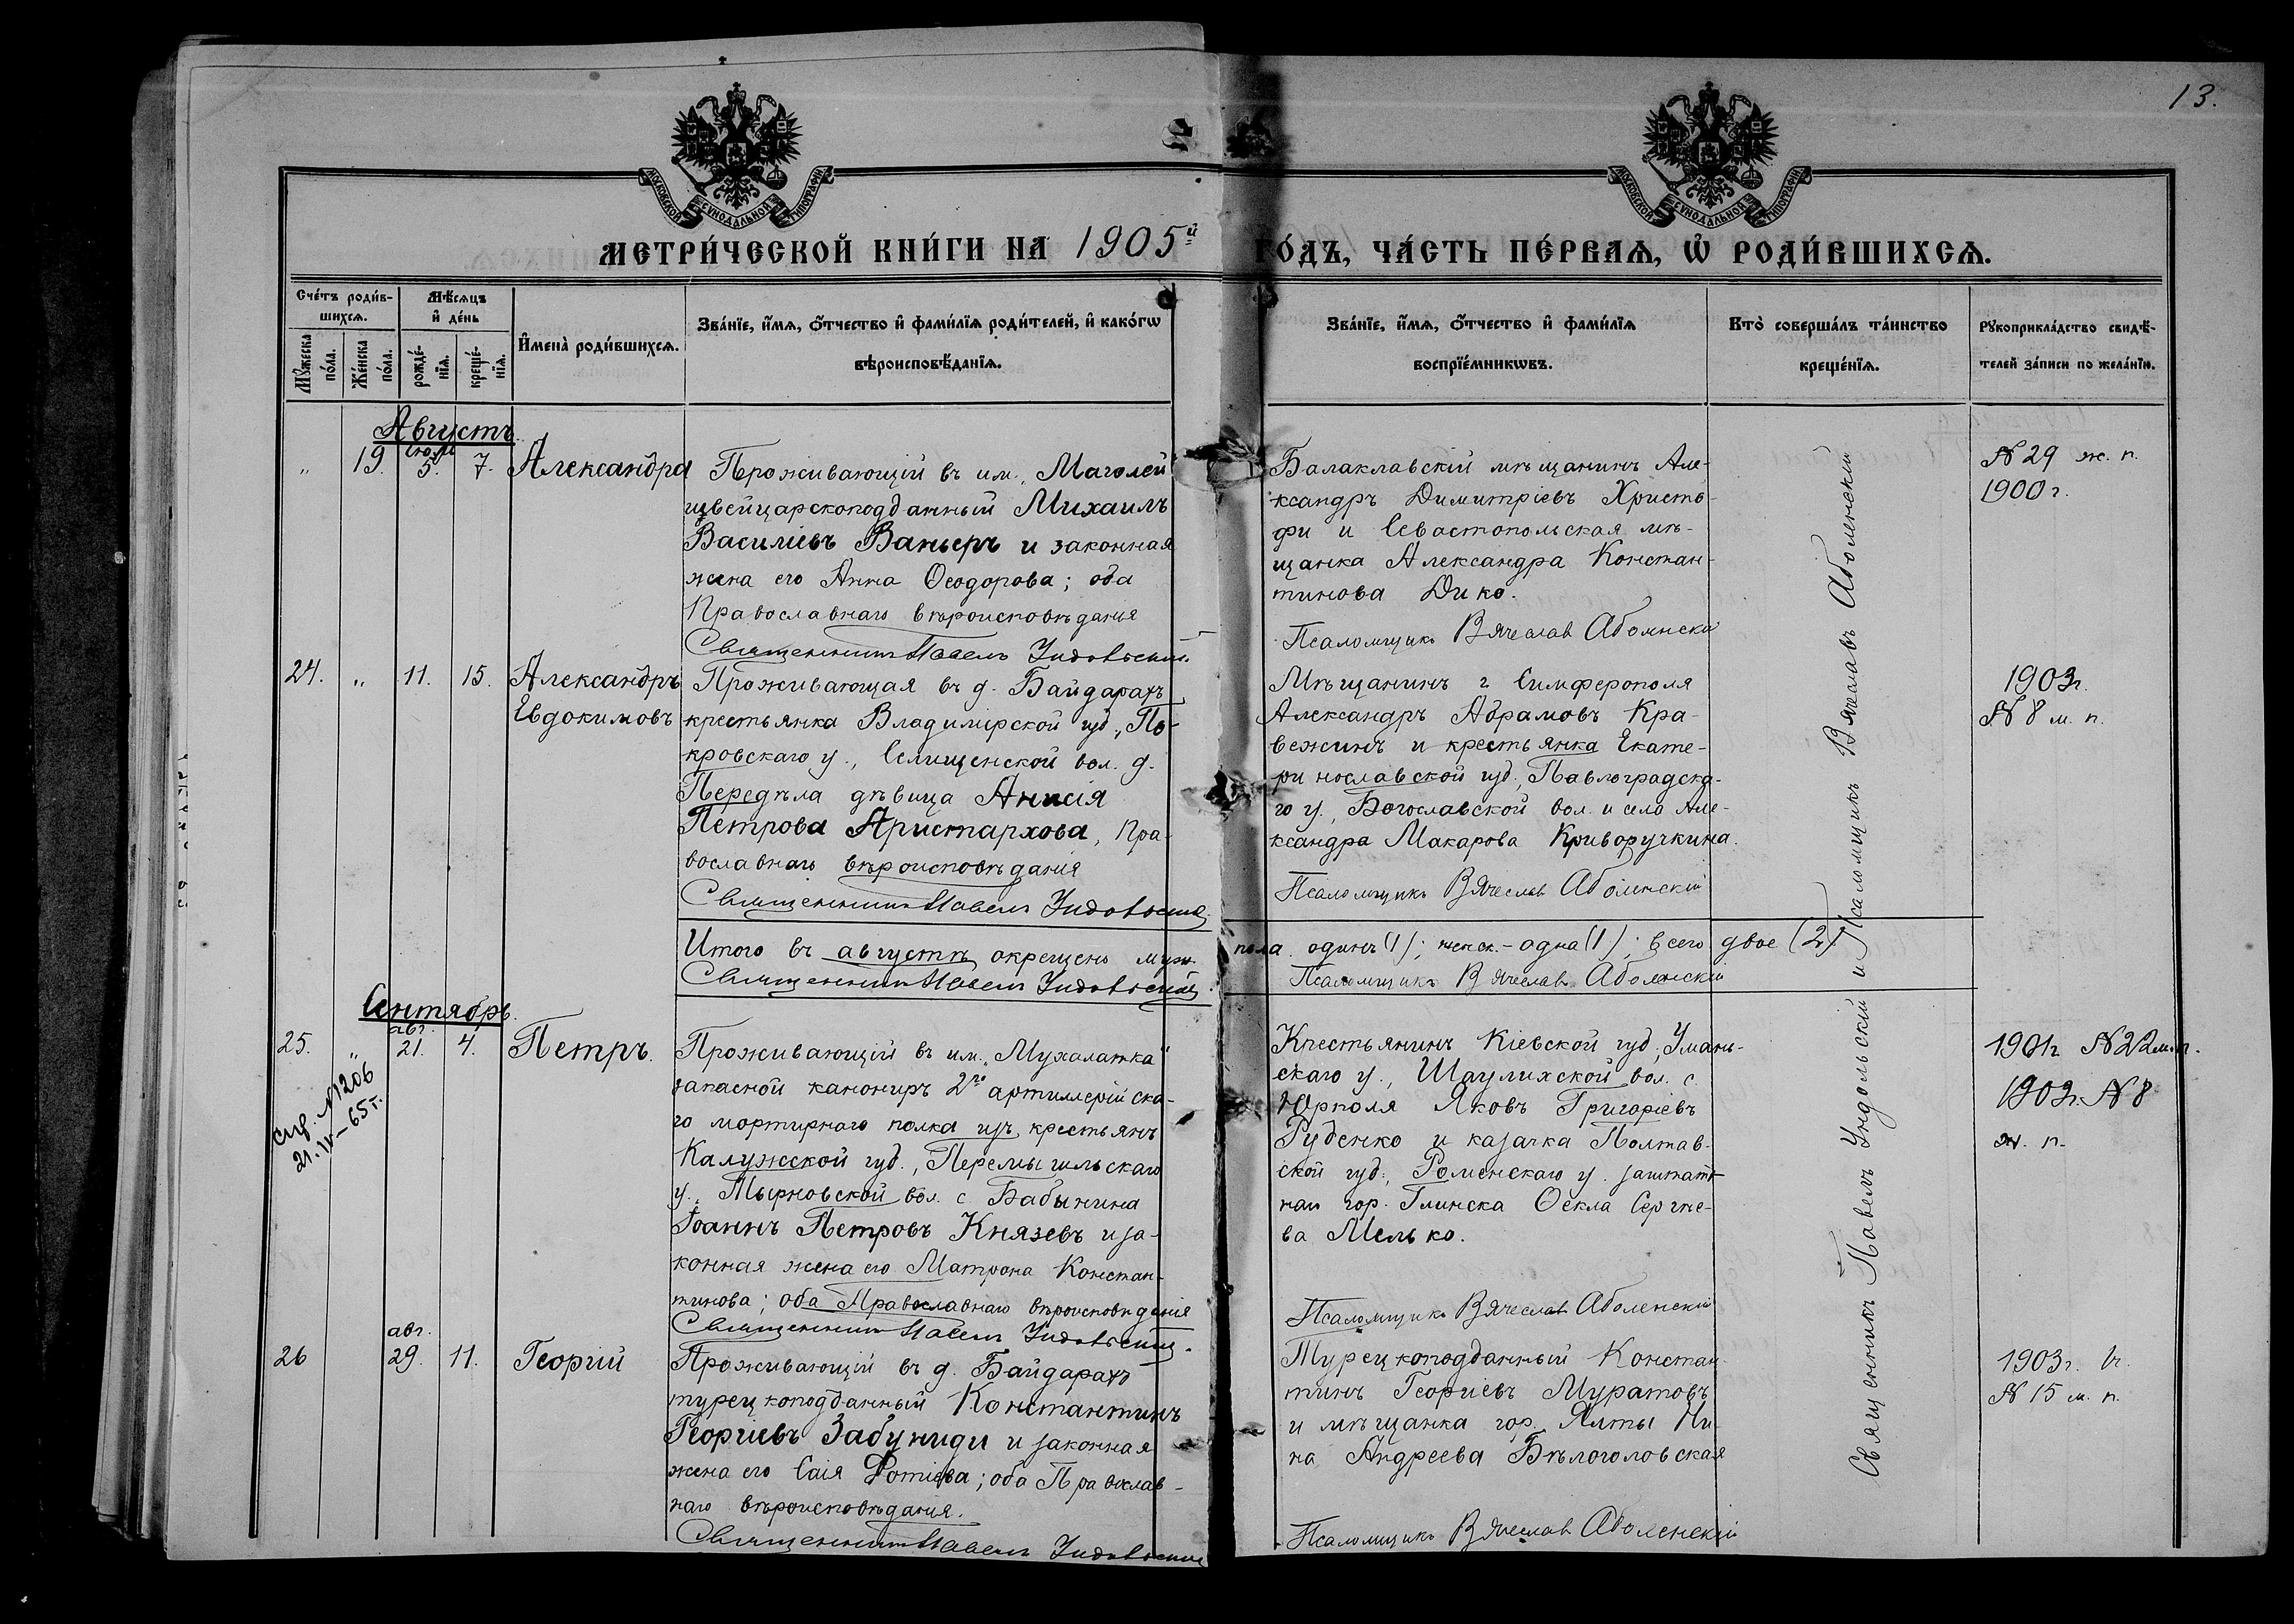 13.
МОСКОВСКОЙ СѴНОДАЛЬНОЙ ТИПОГРАФІИ
МОСКОВСКОЙ СѴНОДАЛЬНОЙ ТИПОГРАФІИ
МЕТРИ́ЧЕСКОЙ КНИ́ГИ НА 1905й ГО́ДЪ, ЧА́СТЬ ПЕ́РВАѦ, Ѡ҆ РОДИ́ВШИХСѦ.
Сче́тъ роди́в-
шихсѧ.
Мꙋжеска по́ла.
Же́нска по́ла.
Мѣ́сѧцъ
и҆ де́нь
рожде́-
нїѧ.
креще́-
нїѧ.
И҆мена̀ роди́вшихсѧ.
Зва́нїе, и҆́мѧ, ѻ҆́тчество и҆ фами́лїѧ роди́телей, и҆ како́гѡ
вѣроисповѣ́данїѧ.
Зва́нїе, и҆́мѧ, ѻ҆́тчество и҆ фами́лїѧ
воспрїе́мникѡвъ.
Кто̀ соверша́лъ та́инство
креще́нїѧ.
Рꙋкоприкла́дство свидѣ́-
телей за́писи по жела́нїю.
Августъ
„ 19. Іюля 5. 7. Александра
Проживающій въ им. „Маголей"
швейцарскоподданный Михаилъ
Василіевъ Ваньеръ и законная
жена его Анна Ѳеодорова; оба
Православнаго вѣроисповѣданія
Священникъ Павелъ Ундольскій.
Балаклавскій мѣщанинъ Але-
ксандръ Димитріевъ Христо-
фи и Севастопольская мѣ-
щанка Александра Констан-
тинова Дико.
Псаломщикъ Вячеславъ Аболенскій
N 29 ж. п.
1900 г.
24. „ 11. 15. Александръ
Евдокимовъ
Проживающая въ д. Байдарахъ
крестьянка Владимірской губ., По-
кровскаго у., Селищенской вол. д.
Передѣла дѣвица Анисія
Петрова Аристархова, Пра-
вославнаго вѣроисповѣданія
Священникъ Павелъ Ундольскій
Мѣщанинъ г. Симферополя
Александръ Абрамовъ Кра-
вежинъ и крестьянка Екате-
ринославской губ., Павлоградска-
го у., Богославской вол. и села Але-
ксандра Макарова Криворучкина.
Псаломщикъ Вячеславъ Аболенскій
1903 г.
N 8 м. п.
Итого въ августѣ окрещено муж. пола одинъ (1); женск. - одна (1); всего двое (2)
Священникъ Павелъ Ундольскій.
Псаломщикъ Вячеславъ Аболенскій
Сентябрь.
25. „ авг. 21. 4. Петръ.
спр. N 206
21.IV-65 г.
Проживающій въ им. „Мухалатка"
запасной канониръ 2го артиллерійска-
го мортирнаго полка изъ крестьянъ
Калужской губ., Перемышльскаго
у., Тырновской вол. с. Бабынина
Іоаннъ Петровъ Князевъ и за-
конная жена его Матрона Констан-
тинова; оба Православнаго вѣроисповѣданія
Священникъ Павелъ Ундольскій.
Крестьянинъ Кіевской губ., Умань-
скаго у., Шаулихской вол. с.
Юрполя Яковъ Григоріевъ
Руденко и казачка Полтав-
ской губ., Роменскаго у. заштат-
наго гор. Глинска Ѳекла Сергѣе-
ва Мелько.
Псаломщикъ Вячеславъ Аболенскій
1901 г. N 22 м. п.
1903 г. N 8
ж. п.
26 авг. 29. 11. Георгій
Проживающій въ д. Байдарахъ
турецкоподданный Константинъ
Георгіевъ Забуниди и законная
жена его Саія Фотіева; оба Православ-
наго вѣроисповѣданія.
Священникъ Павелъ Ундольскій
Турецкоподданный Констан-
тинъ Георгіевъ Муратовъ
и мѣщанка гор. Ялты Ни-
на Андреева Бѣлоголовская
Псаломщикъ Вячеславъ Аболенскій
1903 г.
N 15 м. п.
Священникъ Павелъ Ундольскій и Псаломщикъ Вячеславъ Аболенскій